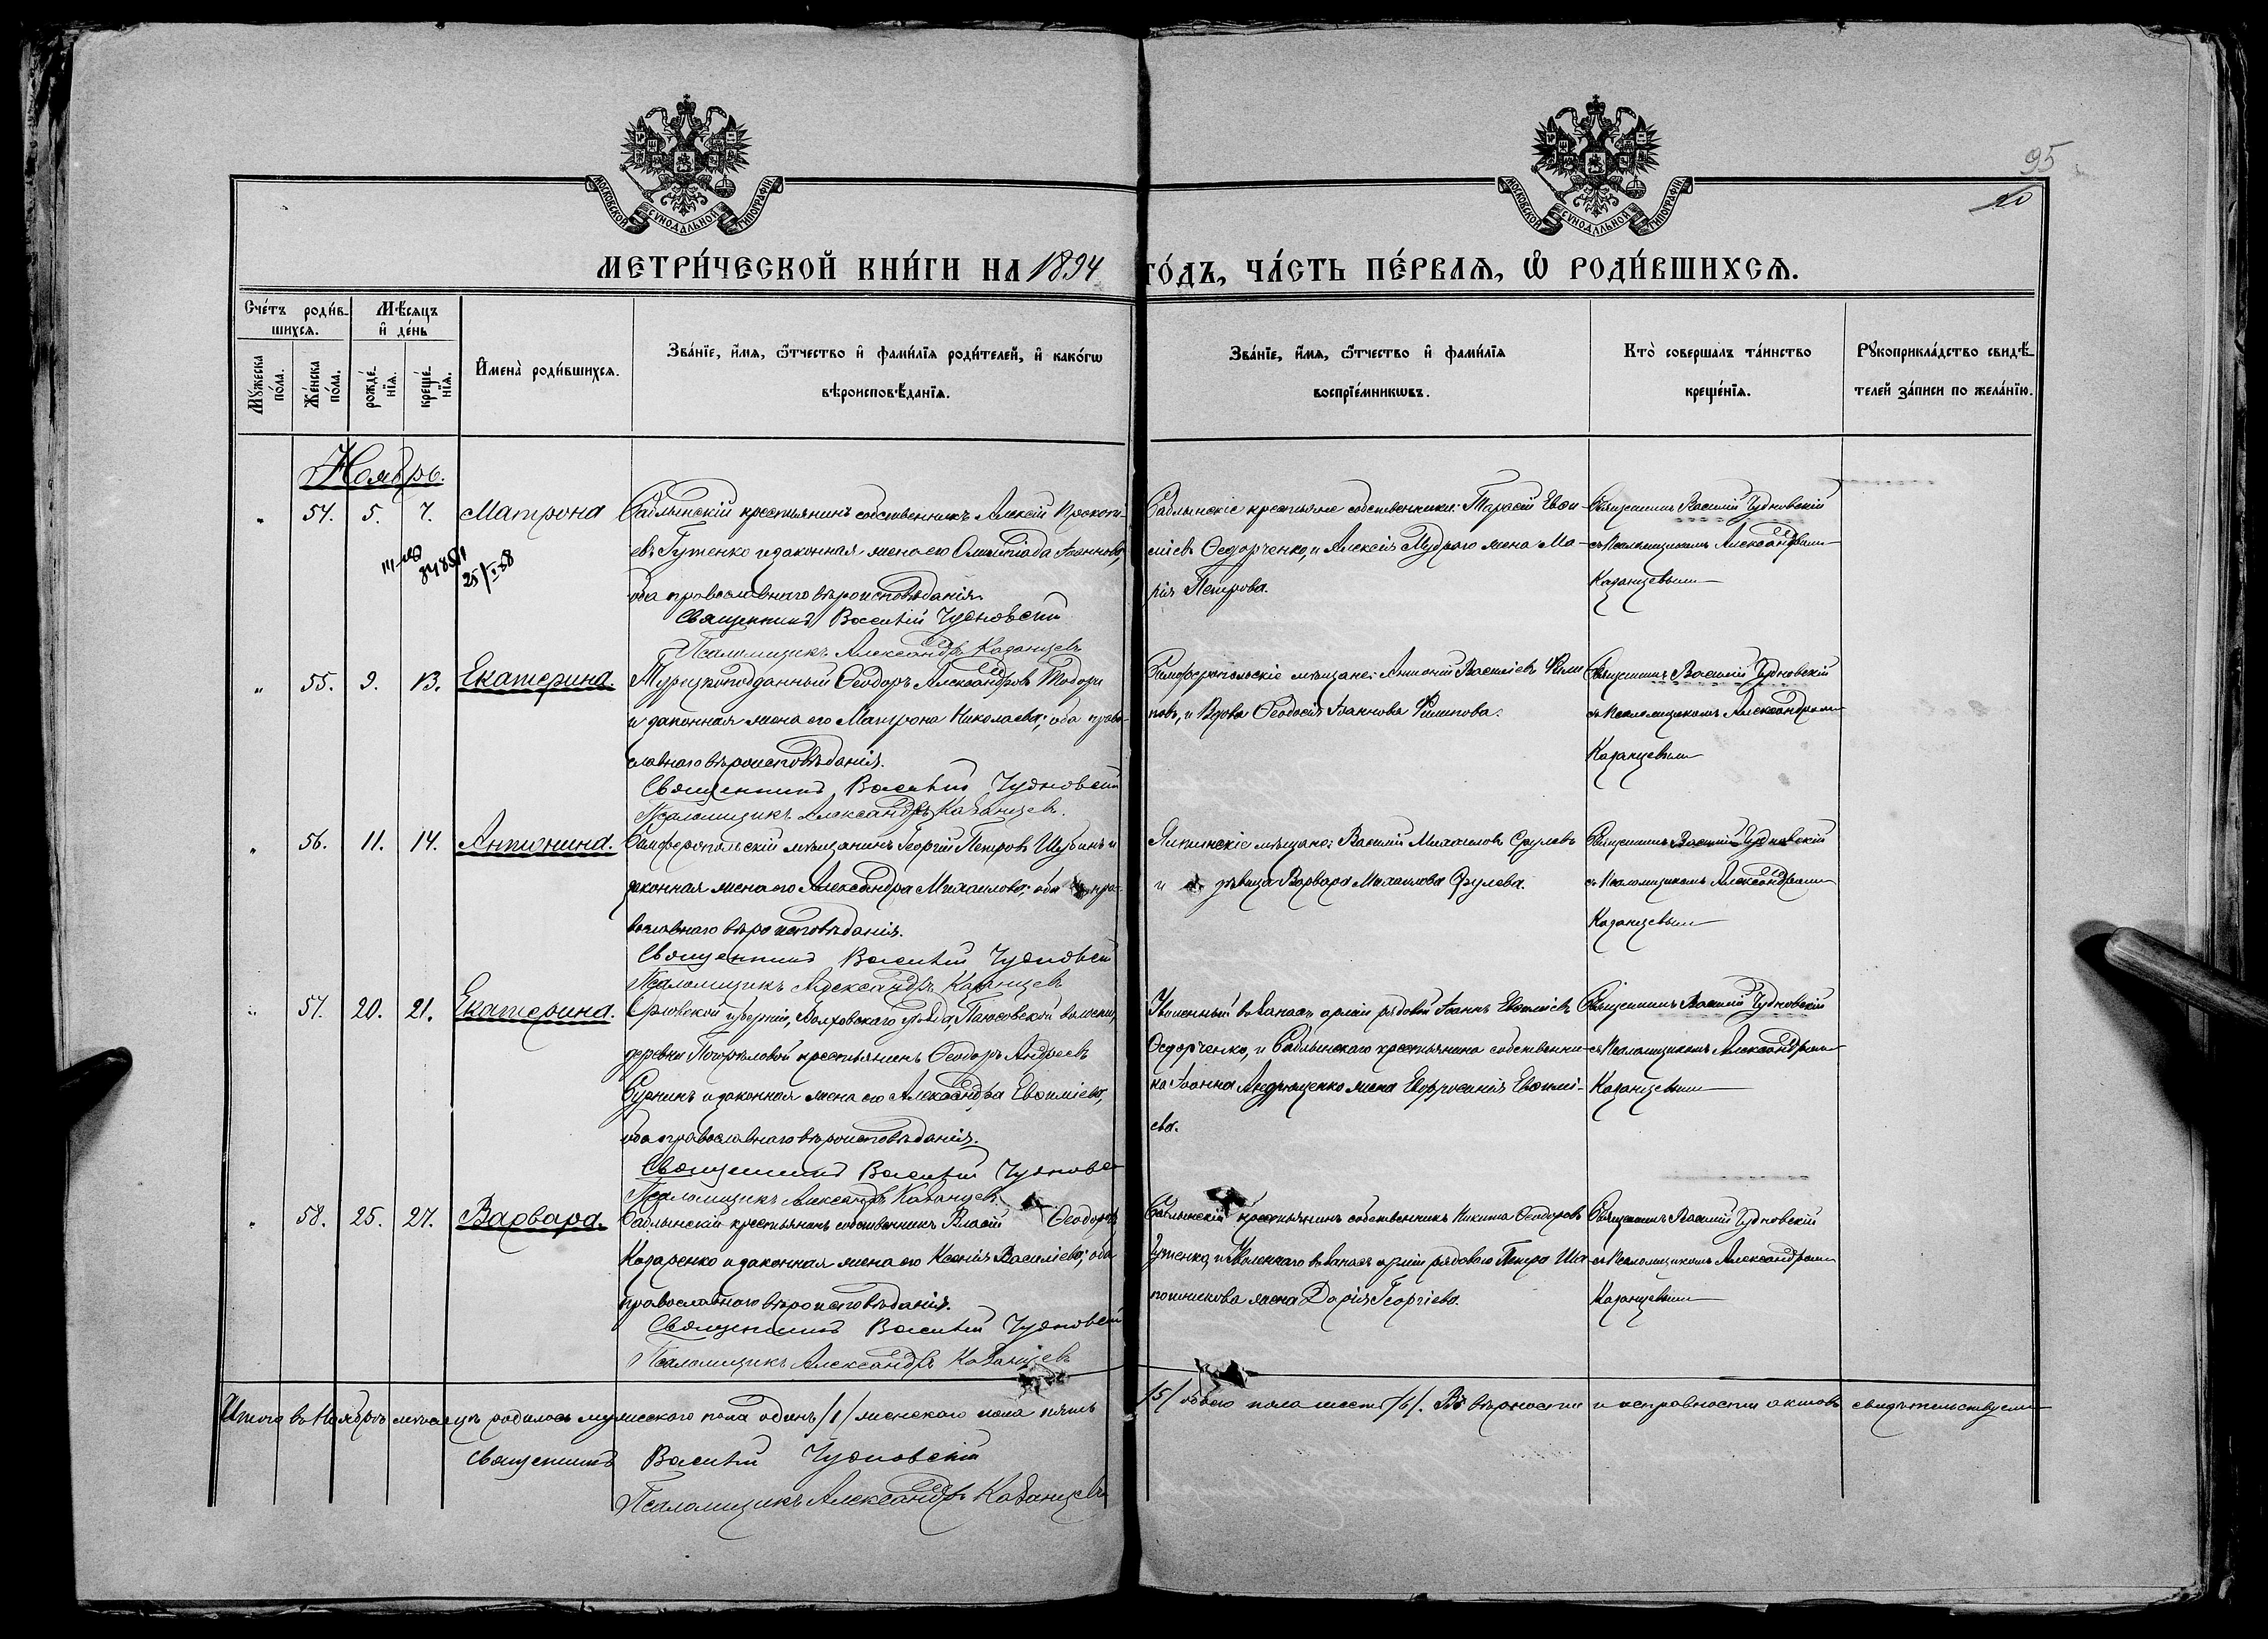 95
20
МОСКОВСКОЙ СУНОДАЛЬНОЙ ТИПОГРАФІИ
МОСКОВСКОЙ СУНОДАЛЬНОЙ ТИПОГРАФІИ
МЕТРИ́ЧЕСКОЙ КНИ́ГИ НА 1894 ГО́ДЪ, ЧА́СТЬ ПЕ́РВАѦ, Ѡ҆ РОДИ́ВШИХСѦ.
Сче́тъ роди́в-
шихсѧ.
Мѣ́сѧцъ
и҆ де́нь
Мꙋ́жеска
по́ла.
Же́нска
по́ла.
рожде́-
нїѧ.
креще́-
нїѧ.
И҆мена̀ роди́вшихсѧ.
Зва́нїе, и҆́мѧ, ѻ҆́тчество и҆ фами́лїѧ роди́телей, и҆ како́гѡ
вѣроисповѣ́данїѧ.
Зва́нїе, и҆́мѧ, ѻ҆́тчество и҆ фами́лїѧ
воспрїе́мникѡвъ.
Кто̀ соверша́лъ та́инство
креще́нїѧ.
Рꙋкоприкла́дство свидѣ́-
телей за́писи по жела́нїю.
Ноябрь.
" 54. 5. 7. Матрона
Саблынскій крестьянинъ собственникъ Алексій Прокопі-
евъ Гутенко и законная жена его Олимпіада Іоаннова,
оба православнаго вѣроисповѣданія.
Священникъ Василій Чудновскій
Псаломщикъ Александръ Казанцевъ
Саблынскіе крестьяне собственники: Тарасій Евѳи-
міевъ Ѳедорченко, и Алексія Мудраго жена Ма-
рія Петрова.
Священникъ Василій Чудновскій
съ Псаломщикомъ Александромъ
Казанцевымъ
" 55. 9. 13. Екатерина.
Турецкоподданный Ѳеодоръ Александровъ Тодори
и законная жена его Матрона Николаева; оба право-
славнаго вѣроисповѣданія.
Священникъ Василій Чудновскій
Псаломщикъ Александръ Казанцевъ.
Симферопольскіе мѣщане: Антоній Василіевъ Фили
повъ, и Вдова Ѳеодосія Іоаннова Филипова.
Священникъ Василій Чудновскій
съ Псаломщикомъ Александромъ
Казанцевымъ
" 56. 11. 14. Антонина.
Симферопольскій мѣщанинъ Георгій Петровъ Шубинъ и
законная жена его Александра Михаилова; оба пра-
вославнаго вѣроисповѣданія.
Священникъ Василій Чудновскій
Псаломщикъ Александръ Казанцевъ
мѣщане: Василій Михаиловъ
и дѣвица Варвара Михаилова
Священникъ Василій Чудновскій
съ Псаломщикомъ Александромъ
Казанцевымъ
" 57. 20. 21. Екатерина.
Орловской губерніи, Болховскаго уѣзда, волости,
деревни крестьянинъ Ѳеодоръ Андреевъ
и законная жена его Александра Евѳиміева,
оба православнаго вѣроисповѣданія.
Священникъ Василій Чудновскій
Псаломщикъ Александръ Казанцевъ.
Уволенный въ запасъ арміи рядовой Іоаннъ Евѳиміевъ
Ѳедорченко, и Саблынскаго крестьянина собственни-
ка Іоанна Андрющенко жена Евфросинія Евѳимі-
ева.
Священникъ Василій Чудновскій
съ Псаломщикомъ Александромъ
Казанцевымъ
" 58. 25. 27. Варвара.
Саблынскій крестьянинъ собственникъ Власій Ѳеодоровъ
Казаренко и законная жена его Ксенія Василіева; оба
православнаго вѣроисповѣданія.
Священникъ Василій Чудновскій
Псаломщикъ Александръ Казанцевъ
Саблынскій крестьянинъ собственникъ Никита Ѳеодоровъ
Гутенко, и Уволеннаго въ запасъ арміи рядоваго Петра Ша
пошникова жена Дарія Георгіева.
Священникъ Василій Чудновскій
съ Псаломщикомъ Александромъ
Казанцевымъ
Итого въ Ноябрѣ мѣсяцѣ родилось мужескаго пола одинъ /1/ женскаго пола пять /5/ обоего пола шесть /6/. Въ вѣрности и исправности актовъ свидѣтельствуемъ
Священникъ Василій Чудновскій
Псаломщикъ Александръ Казанцевъ